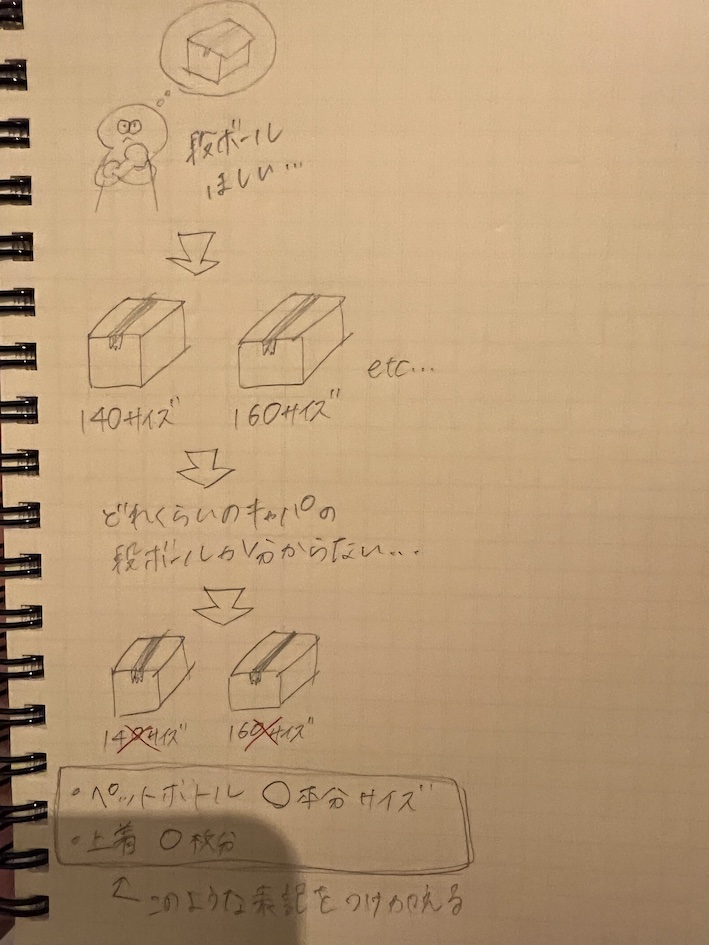 段ボール
ほしい…
140サイズ
160サイズ
etc…
どれくらいのキャパの
段ボールか分からない…
140サイズ
160サイズ
・ペットボトル 〇本分サイズ
・上着 〇枚分
↑このような表記をつけかえる